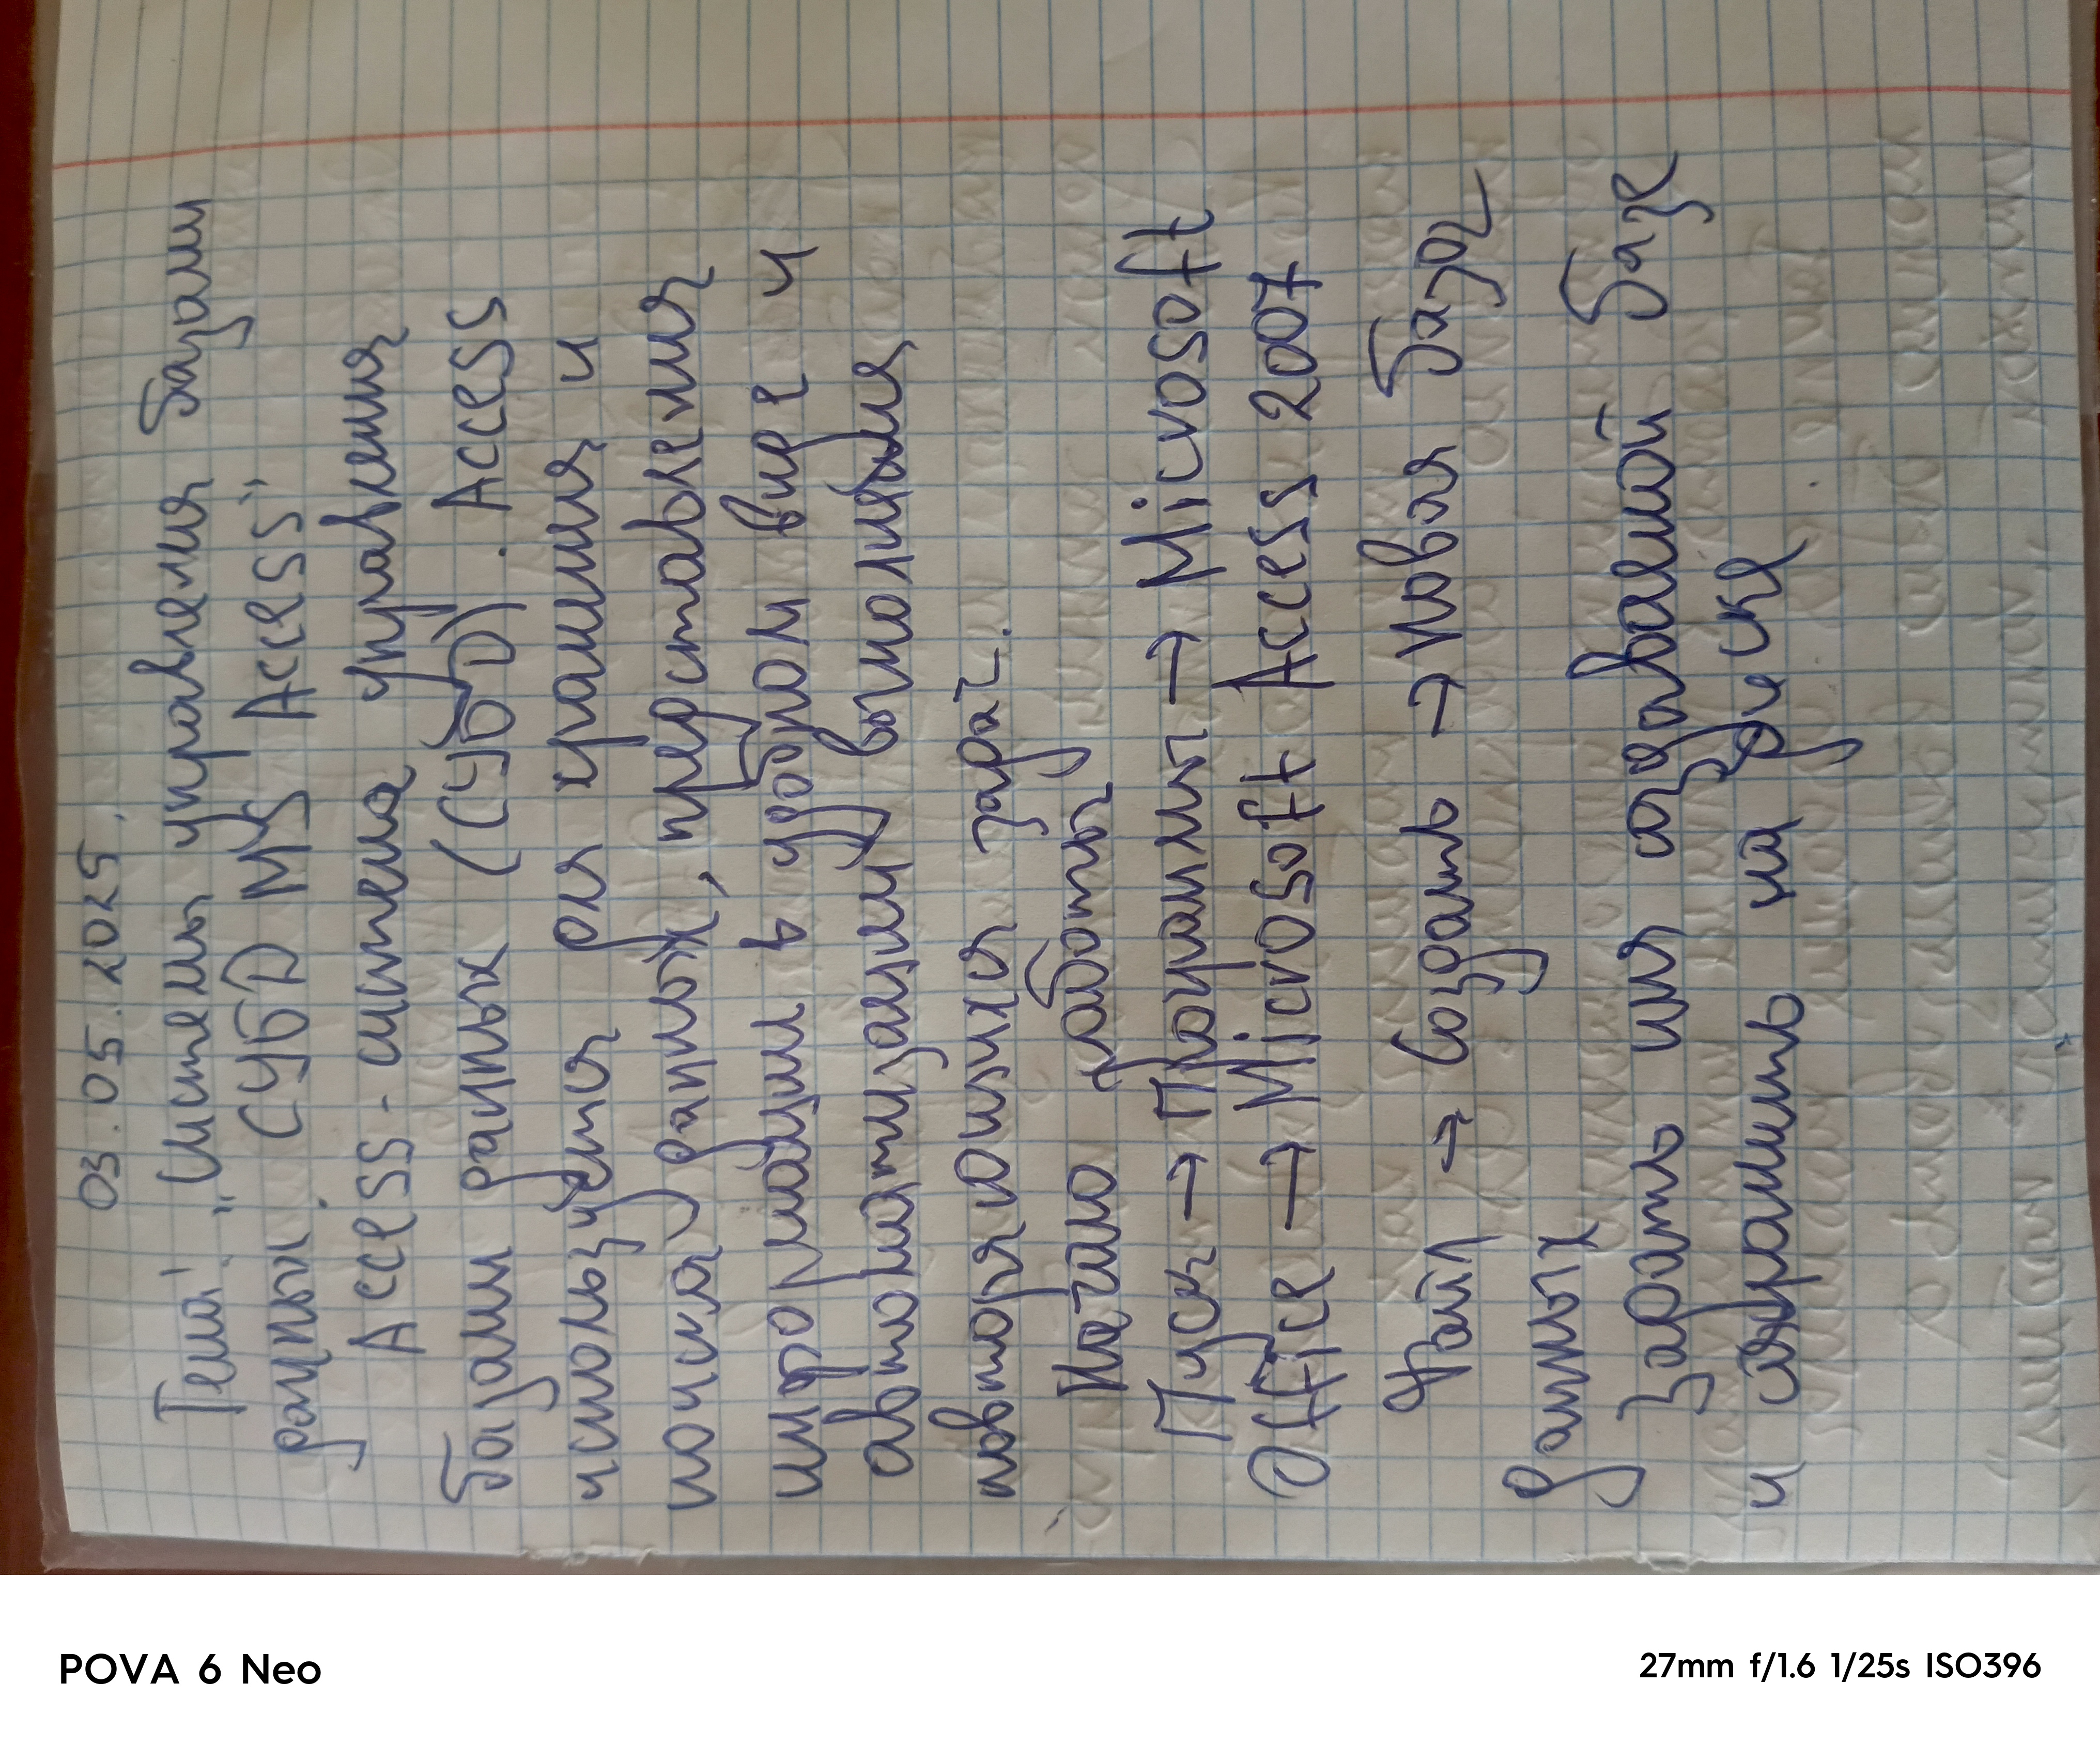 03.05.2025.
Тема: „Системы управления базами
данных. СУБД MS Access"
Access - система управления
базами данных (СУБД). Access
используется для хранения и
поиска данных, представления
информации в удобном виде и
автоматизации выполнения
повторяющихся задач.
Начало работы
Пуск → Программы → Microsoft
Office → Microsoft Access 2007
Файл → Создать → Новая база
данных
Задать имя создаваемой базе
и сохранить на диске
POVA 6 Neo
27mm f/1.6 1/25s ISO396